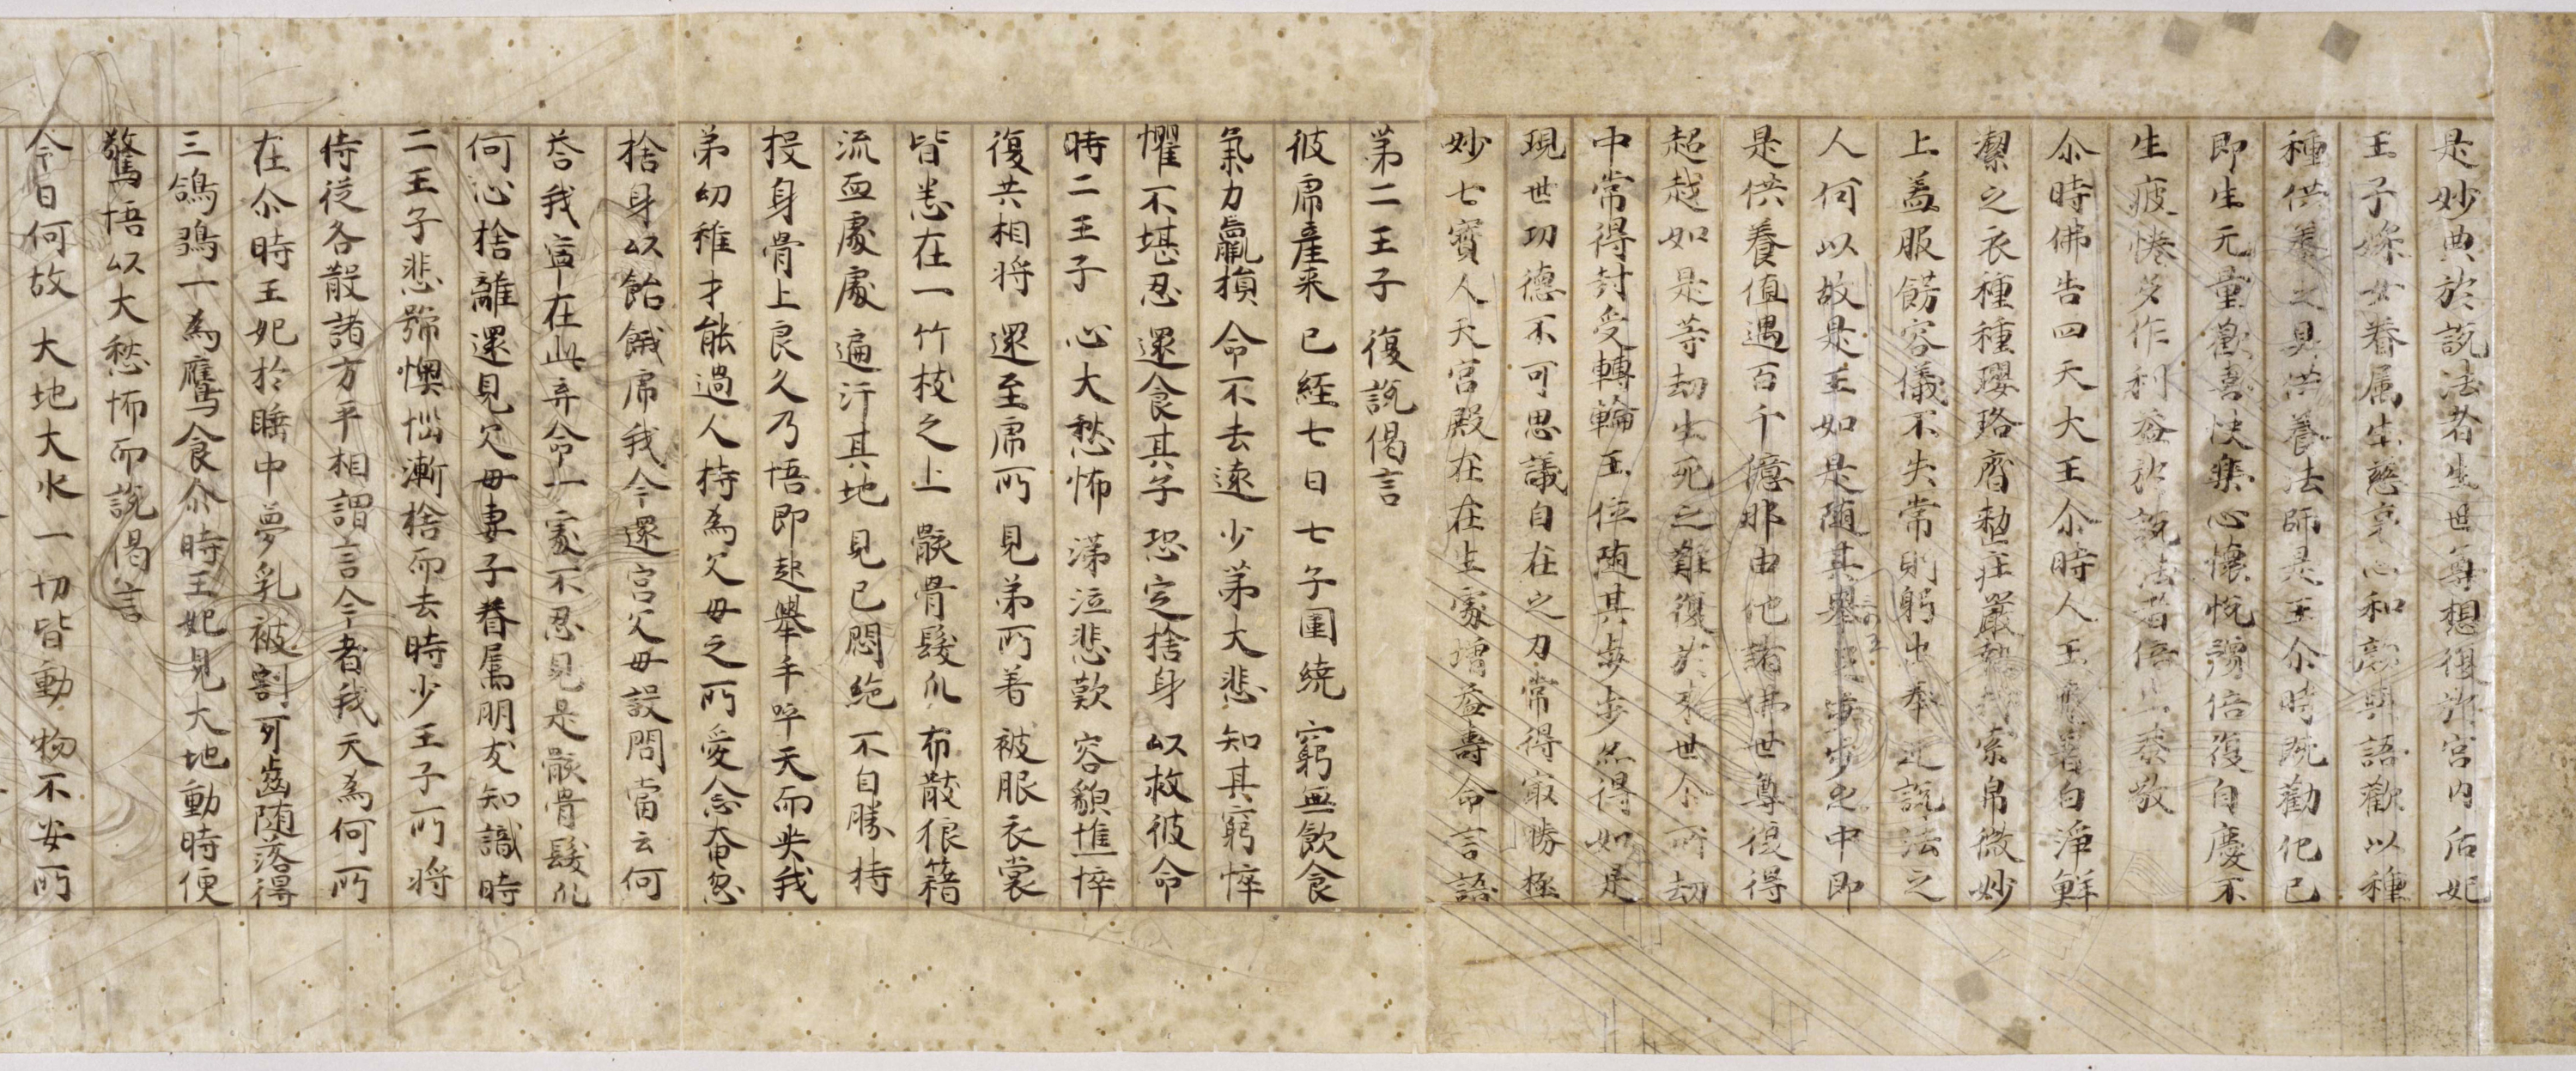 是妙典於説法者生世尊想復於宮内后妃
王子婇女眷属生慈哀心和顔與語歡以種
種供養之具供養法師是王尒時既勸化已
即生无量歡喜快樂心懷悦豫倍復自慶不
生疲惓多作利益於説法者倍生恭敬
尒時佛告四天大王尒時人王應著白淨鮮
潔之衣種種瓔珞齊整荘嚴執持素帛微妙
上盖服餝容儀不失常則躬出奉迎説法之
人何以故是王如是随其舉足步步之中即
是供養值遇百千億那由他諸佛世尊復得
超越如是等劫生死之難復於来世尒所劫
中常得封受轉輪王位随其步步亦得如是
現世功德不可思議自在之力常得㝡勝極
妙七寳人天宮殿在在生處増益壽命言語
苐二王子 復説偈言
彼虎產来 已経七日 七子圍繞 窮無飲食
氣力羸損 命不去遠 少苐大悲 知其窮悴
懼不堪忍 還食其子 恐定捨身 以救彼命
時二王子 心大愁怖 涕泣悲歎 容貌憔悴
復共相将 還至虎所 見弟所著 被服衣裳
皆悉在一竹枝之上 骸骨髮爪 布散狼籍
流血處處 遍汙其地 見已悶絶 不自勝持
投身骨上良久乃悟即起舉手呼天而哭我
弟幼稚才能過人特為父母之所愛念奄忽
捨身以飴餓虎我今還宮父母設問當云何
荅我寧在此弃命一處不忍見是骸骨髮爪
何心捨離還見父母妻子眷属朋友知識時
二王子悲號懊惱漸捨而去時少王子所将
侍従各散諸方乎相謂言今者我天為何所
在尒時王妃於睡中夢乳被割牙齒随落得
三鴿鶵一為鷹食尒時王妃見大地動時便
驚悟以大愁怖而説偈言
今日何故 大地大水 一切皆動 物不安所